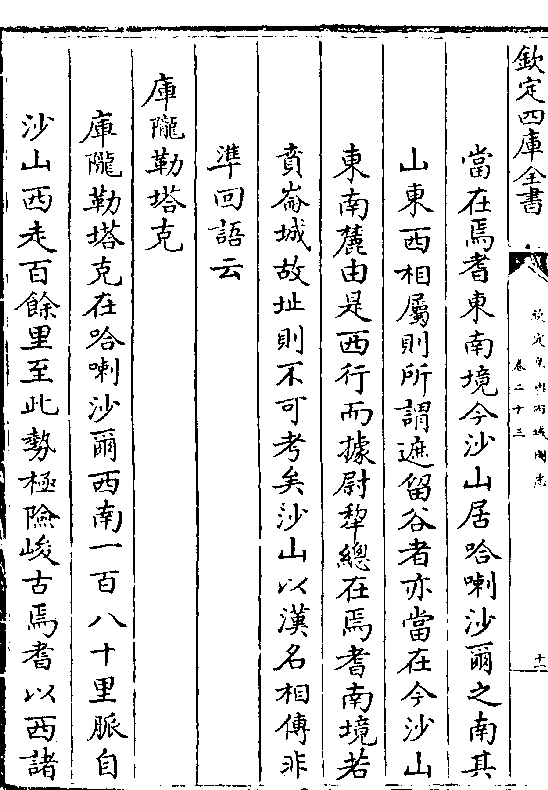 欽定四庫全書
欽定皇輿西域圖志
卷二十三
十二
當在焉耆東南境今沙山居哈喇沙爾之南其
山東西相屬則所謂遮留谷者亦當在今沙山
東南麓由是西行而據尉犂總在焉耆南境若
賁崙城故址則不可考矣沙山以漢名相傳非
準回語云
庫隴勒塔克
庫隴勒塔克在哈喇沙爾西南一百八十里脈自
沙山西走百餘里至此勢極險峻古焉耆以西諸